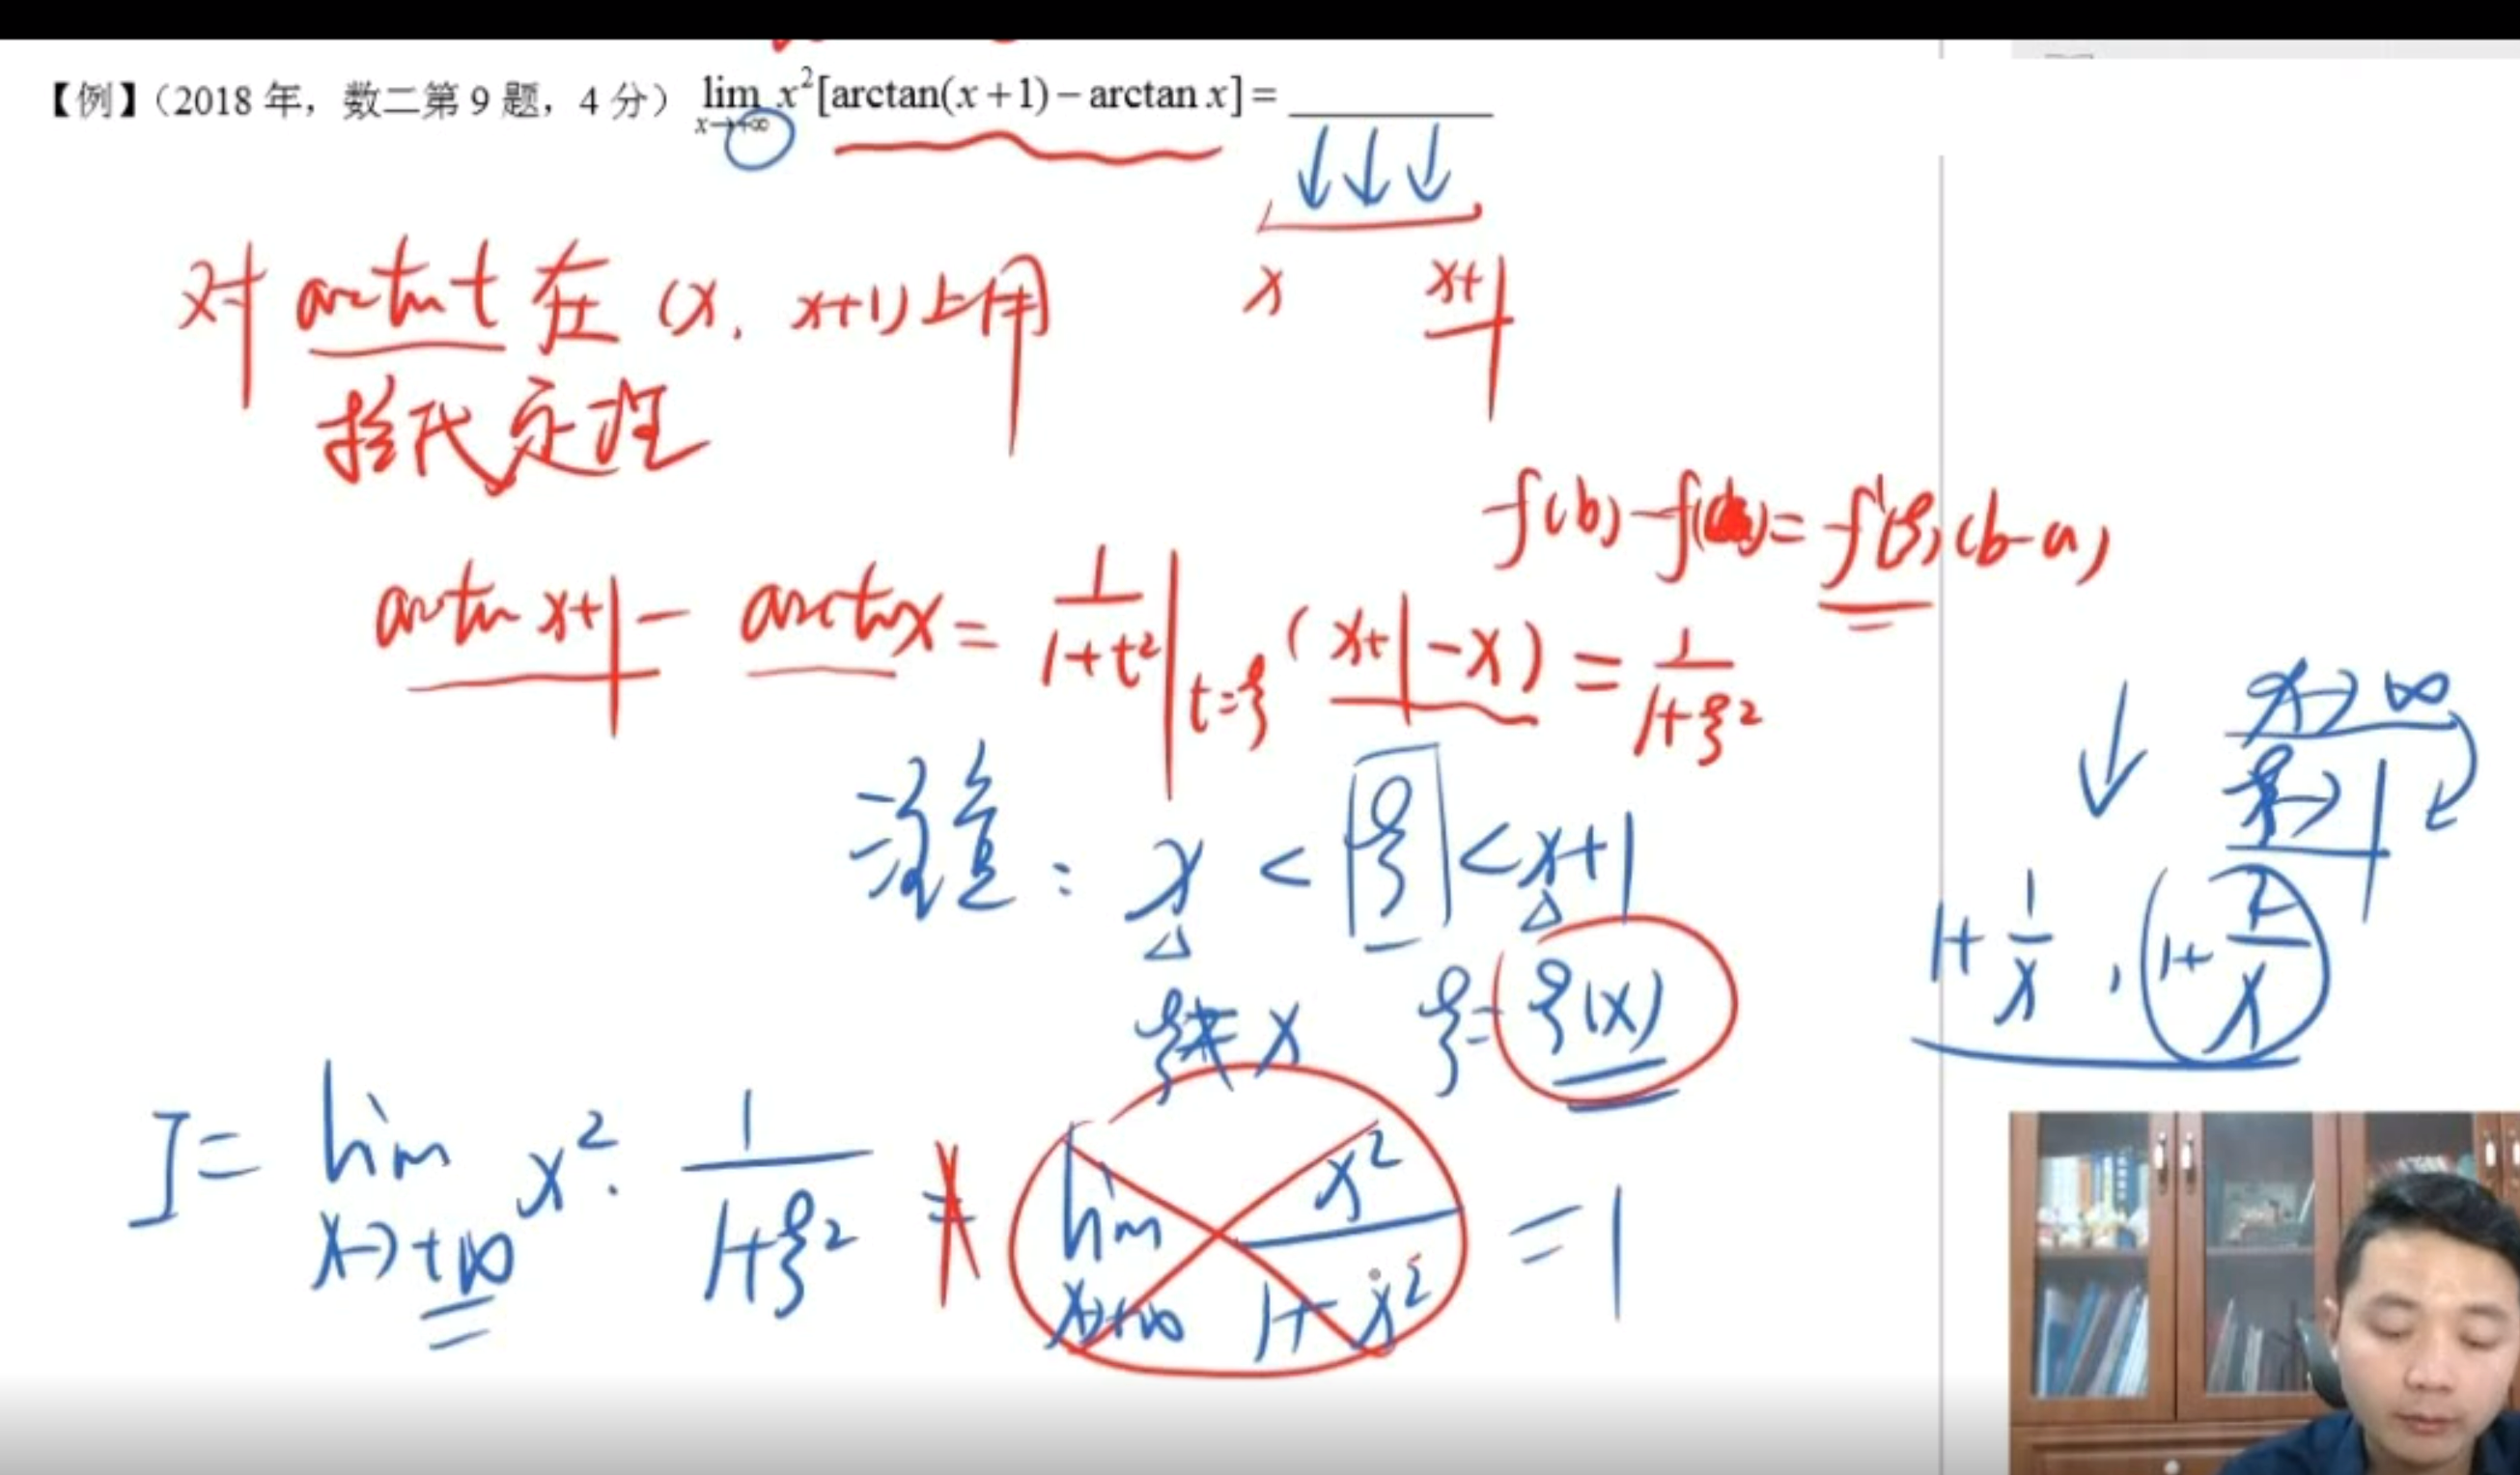 【例】(2018 年，数二第 9 题，4 分) lim x→+∞ x²[arctan(x+1)−arctan x]=
x x+1
对 arctan t 在 (x, x+1) 上用
拉氏定理
f(b)-f(a)=f'(ξ)(b-a)
arctan x+1 - arctan x = 1/(1+t²)|t=ξ (x+1-x) = 1/(1+ξ²)
x→∞
注意: x < ξ < x+1
1+1/x , (1+2/x)
ξ≠x ξ=ξ(x)
I= lim x→+∞ x²· 1/(1+ξ²) = lim x→+∞ x²/(1+x²) =1